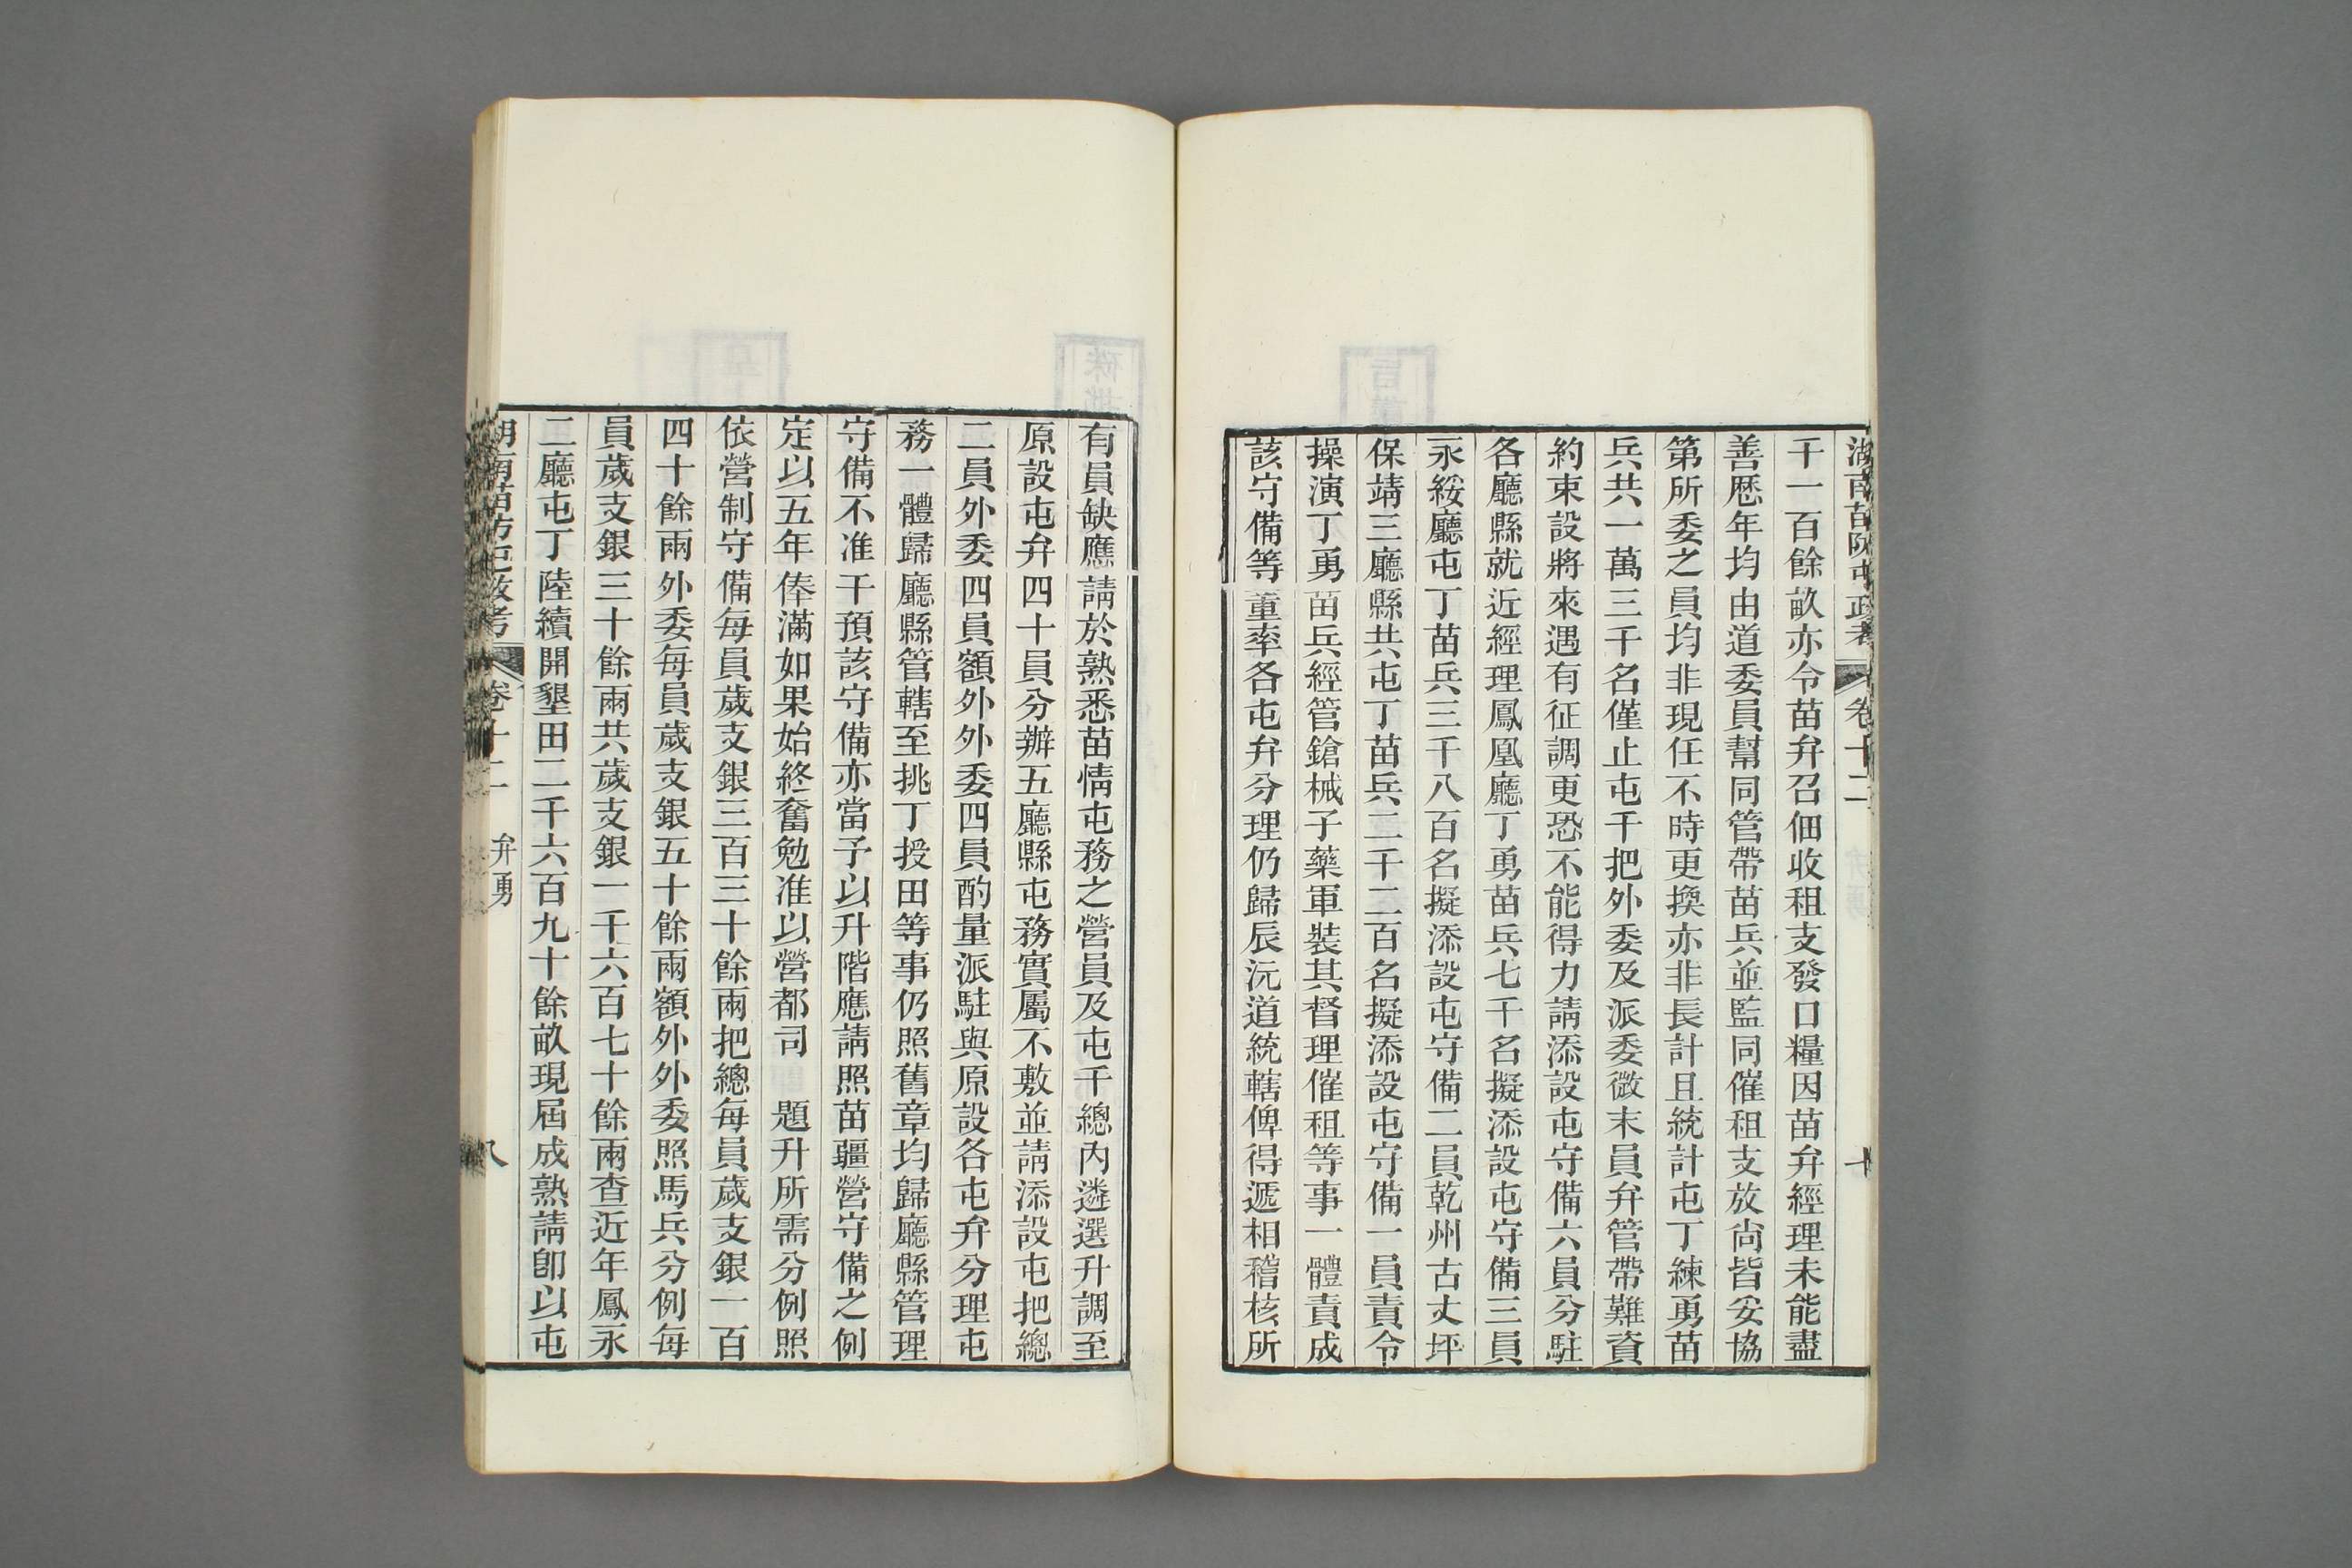 湖南苗防屯政考 卷十二
千一百餘畝亦令苗弁召佃收租支發口糧因苗弁經理未能盡
善歴年均由道委員幫同管帶苗兵並監同催租支放尙皆妥協
第所委之員均非現任不時更換亦非長計且統計屯丁練勇苗
兵共一萬三千名僅止屯千把外委及派委微末員弁管帶難資
約束設將來遇有征調更恐不能得力請添設屯守備六員分駐
各廳縣就近經理鳳凰廳丁勇苗兵七千名擬添設屯守備三員
永綏廳屯丁苗兵三千八百名擬添設屯守備二員乾州古丈坪
保靖三廳縣共屯丁苗兵二千二百名擬添設屯守備一員責令
操演丁勇苗兵經管鎗械子藥軍裝其督理催租等事一體責成
該守備等董率各屯弁分理仍歸辰沅道統轄俾得遞相稽核所
有員缺應請於熟悉苗情屯務之營員及屯千總內遴選升調至
原設屯弁四十員分辦五廳縣屯務實屬不敷並請添設屯把總
二員外委四員額外外委四員酌量派駐與原設各屯弁分理屯
務一體歸廳縣管轄至挑丁授田等事仍照舊章均歸廳縣管理
守備不准干預該守備亦當予以升階應請照苗疆營守備之例
定以五年俸滿如果始終奮勉准以營都司 題升所需分例照
依營制守備每員歲支銀三百三十餘兩把總每員歲支銀一百
四十餘兩外委每員歲支銀五十餘兩額外外委照馬兵分例每
員歲支銀三十餘兩共歲支銀一千六百七十餘兩查近年鳳永
二廳屯丁陸續開墾田二千六百九十餘畝現屆成熟請卽以屯
湖南苗防屯政考 卷十二 弁勇 八